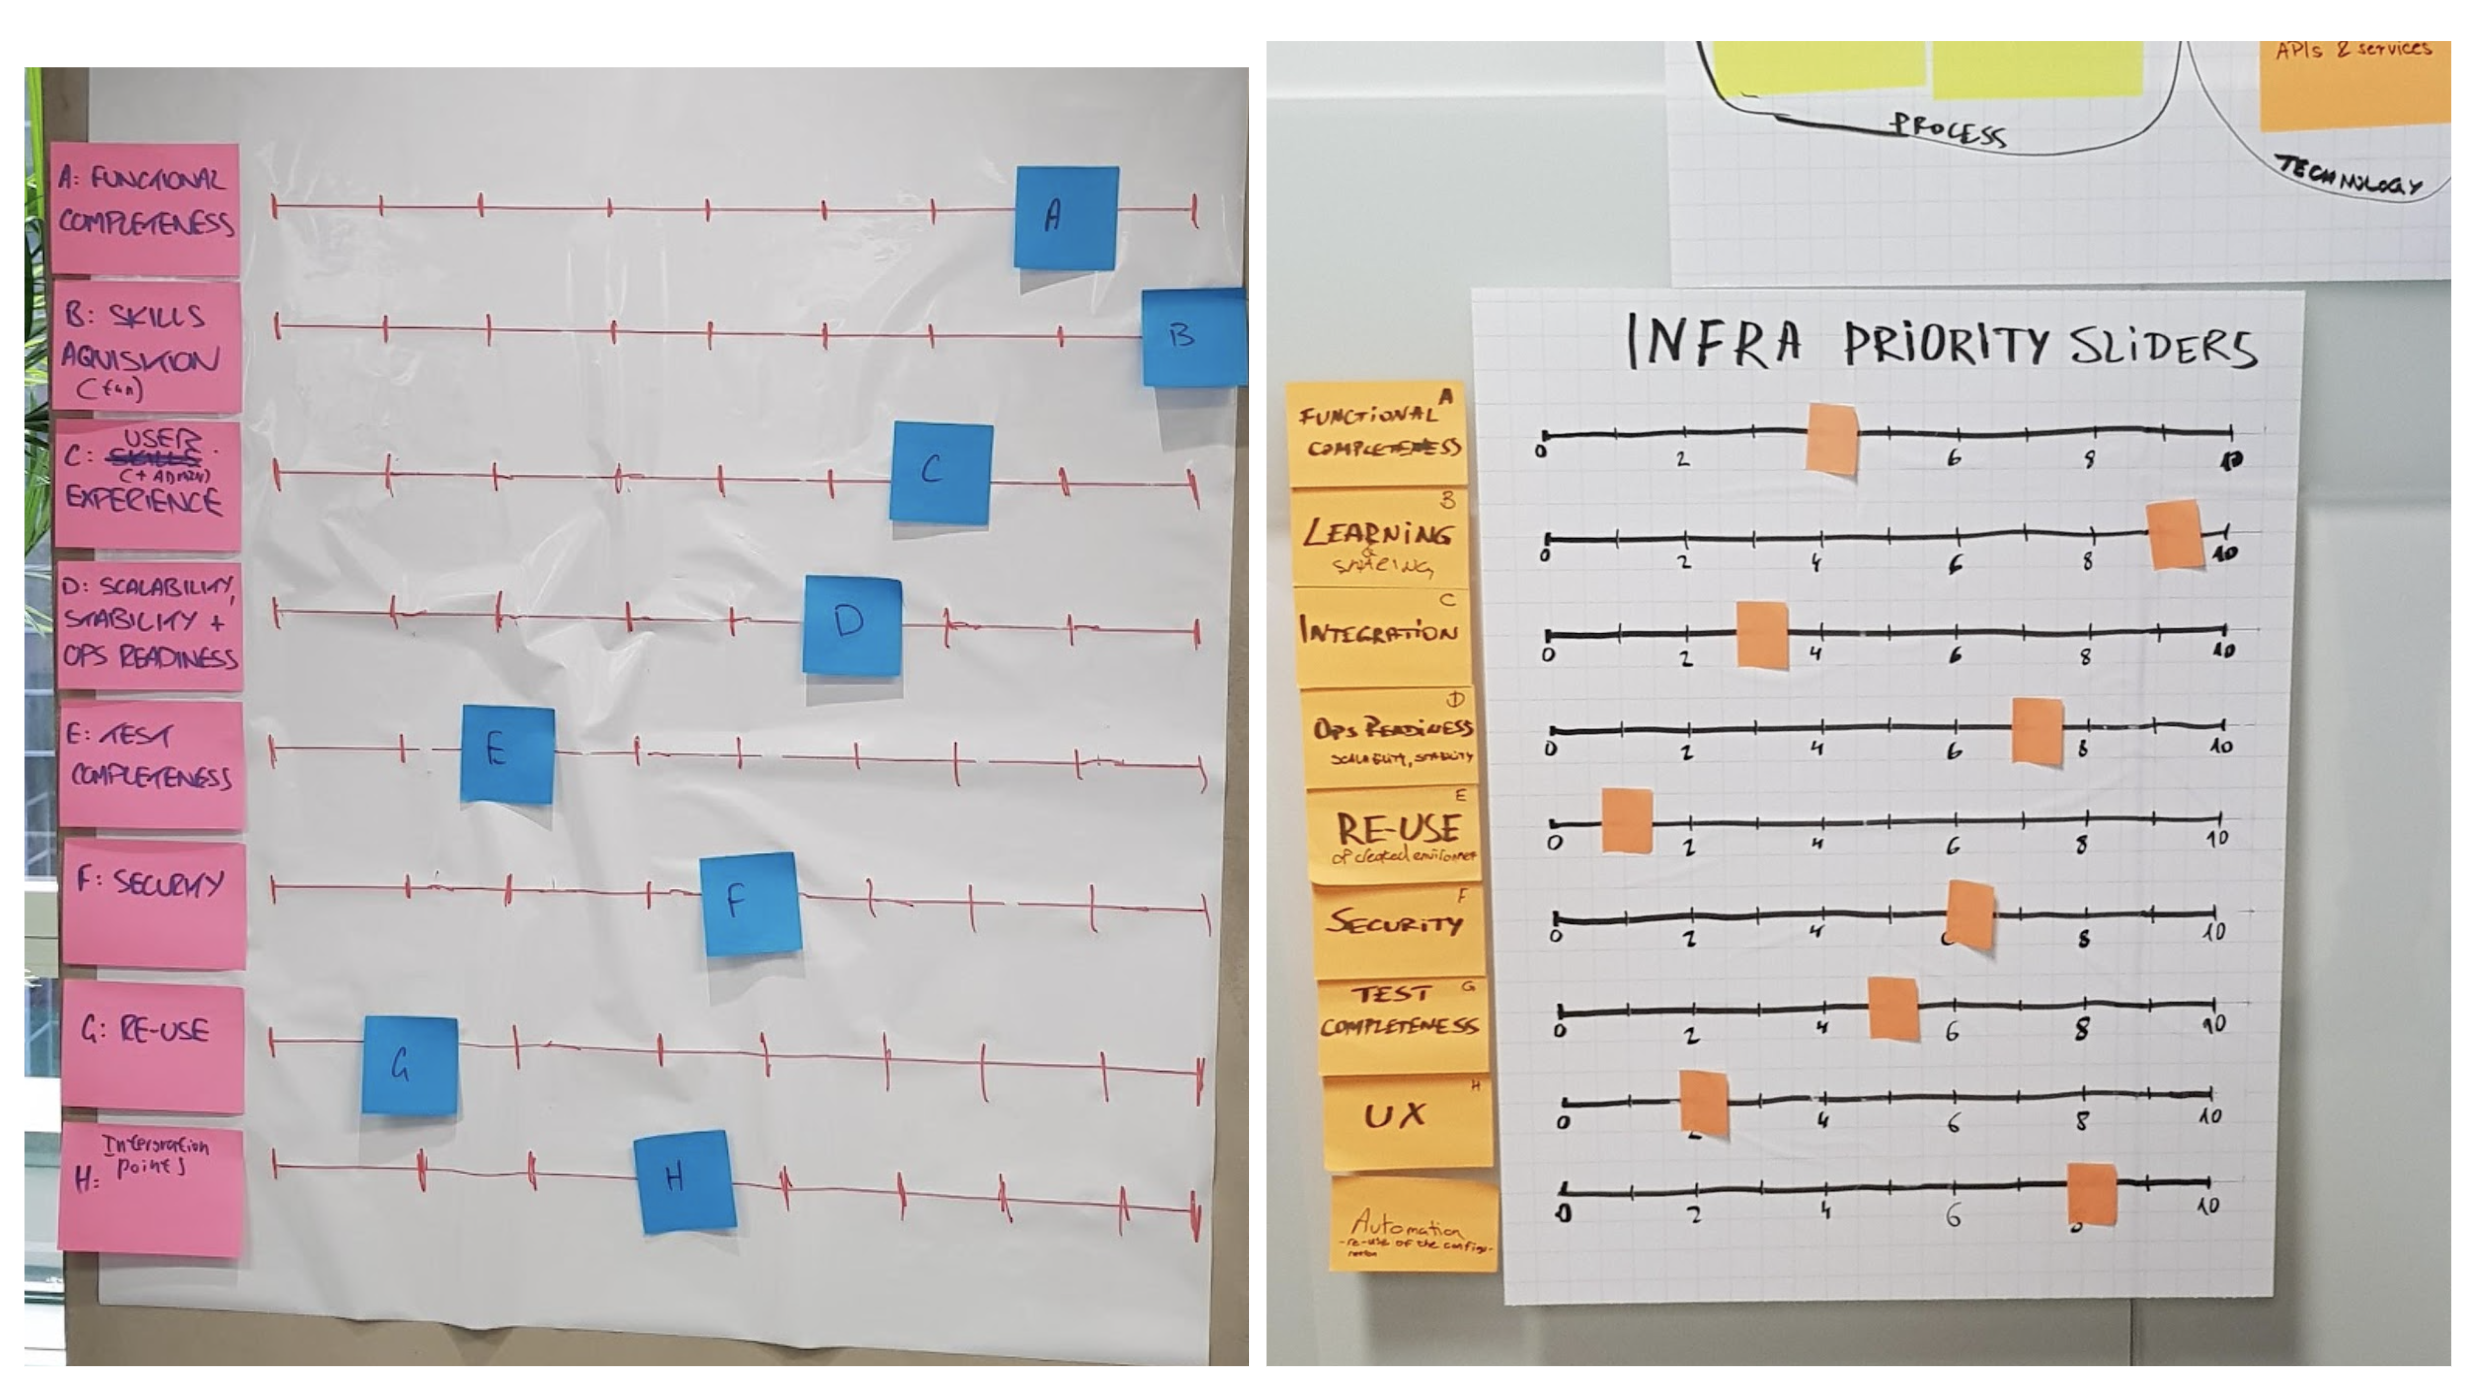 A: FUNCTIONAL
COMPLETENESS
A
B: SKILLS
AQUISITION
(fun)
B
USER
C: SKILLS
(+ ADMIN)
EXPERIENCE
C
D: SCALABILITY,
STABILITY +
OPS READINESS
D
E: TEST
COMPLETENESS
E
F: SECURITY
F
G: RE-USE
G
Intergration
H: points
H
APIs & services
PROCESS
TECHNOLOGY
INFRA PRIORITY SLIDERS
A
FUNCTIONAL
COMPLETENESS
0 2 6 8 10
B
LEARNING
&
SHARING
0 2 4 6 8 10
C
INTEGRATION
0 2 4 6 8 10
D
OPS READINESS
SCALABILITY, STABILITY
0 2 4 6 8 10
E
RE-USE
of created environment
0 2 4 6 8 10
F
SECURITY
0 2 4 8 10
G
TEST
COMPLETENESS
0 2 4 6 8 10
H
UX
0 4 6 8 10
Automation
- re-use of the configu-
ration
0 2 4 6 10